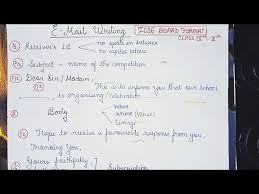 E-Mail Writing [ICSE BOARD FORMAT]
CLASS IXth - Xth
Receiver's Id no space in between
no capital letters
Subject - name of the competition
Dear Sir / Madam,
This is to inform you that our school
is organising / celebration
Body When
Where (Venue)
Timings
Hope to receive a favourable response from you.
Thanking You,
Yours faithfully,